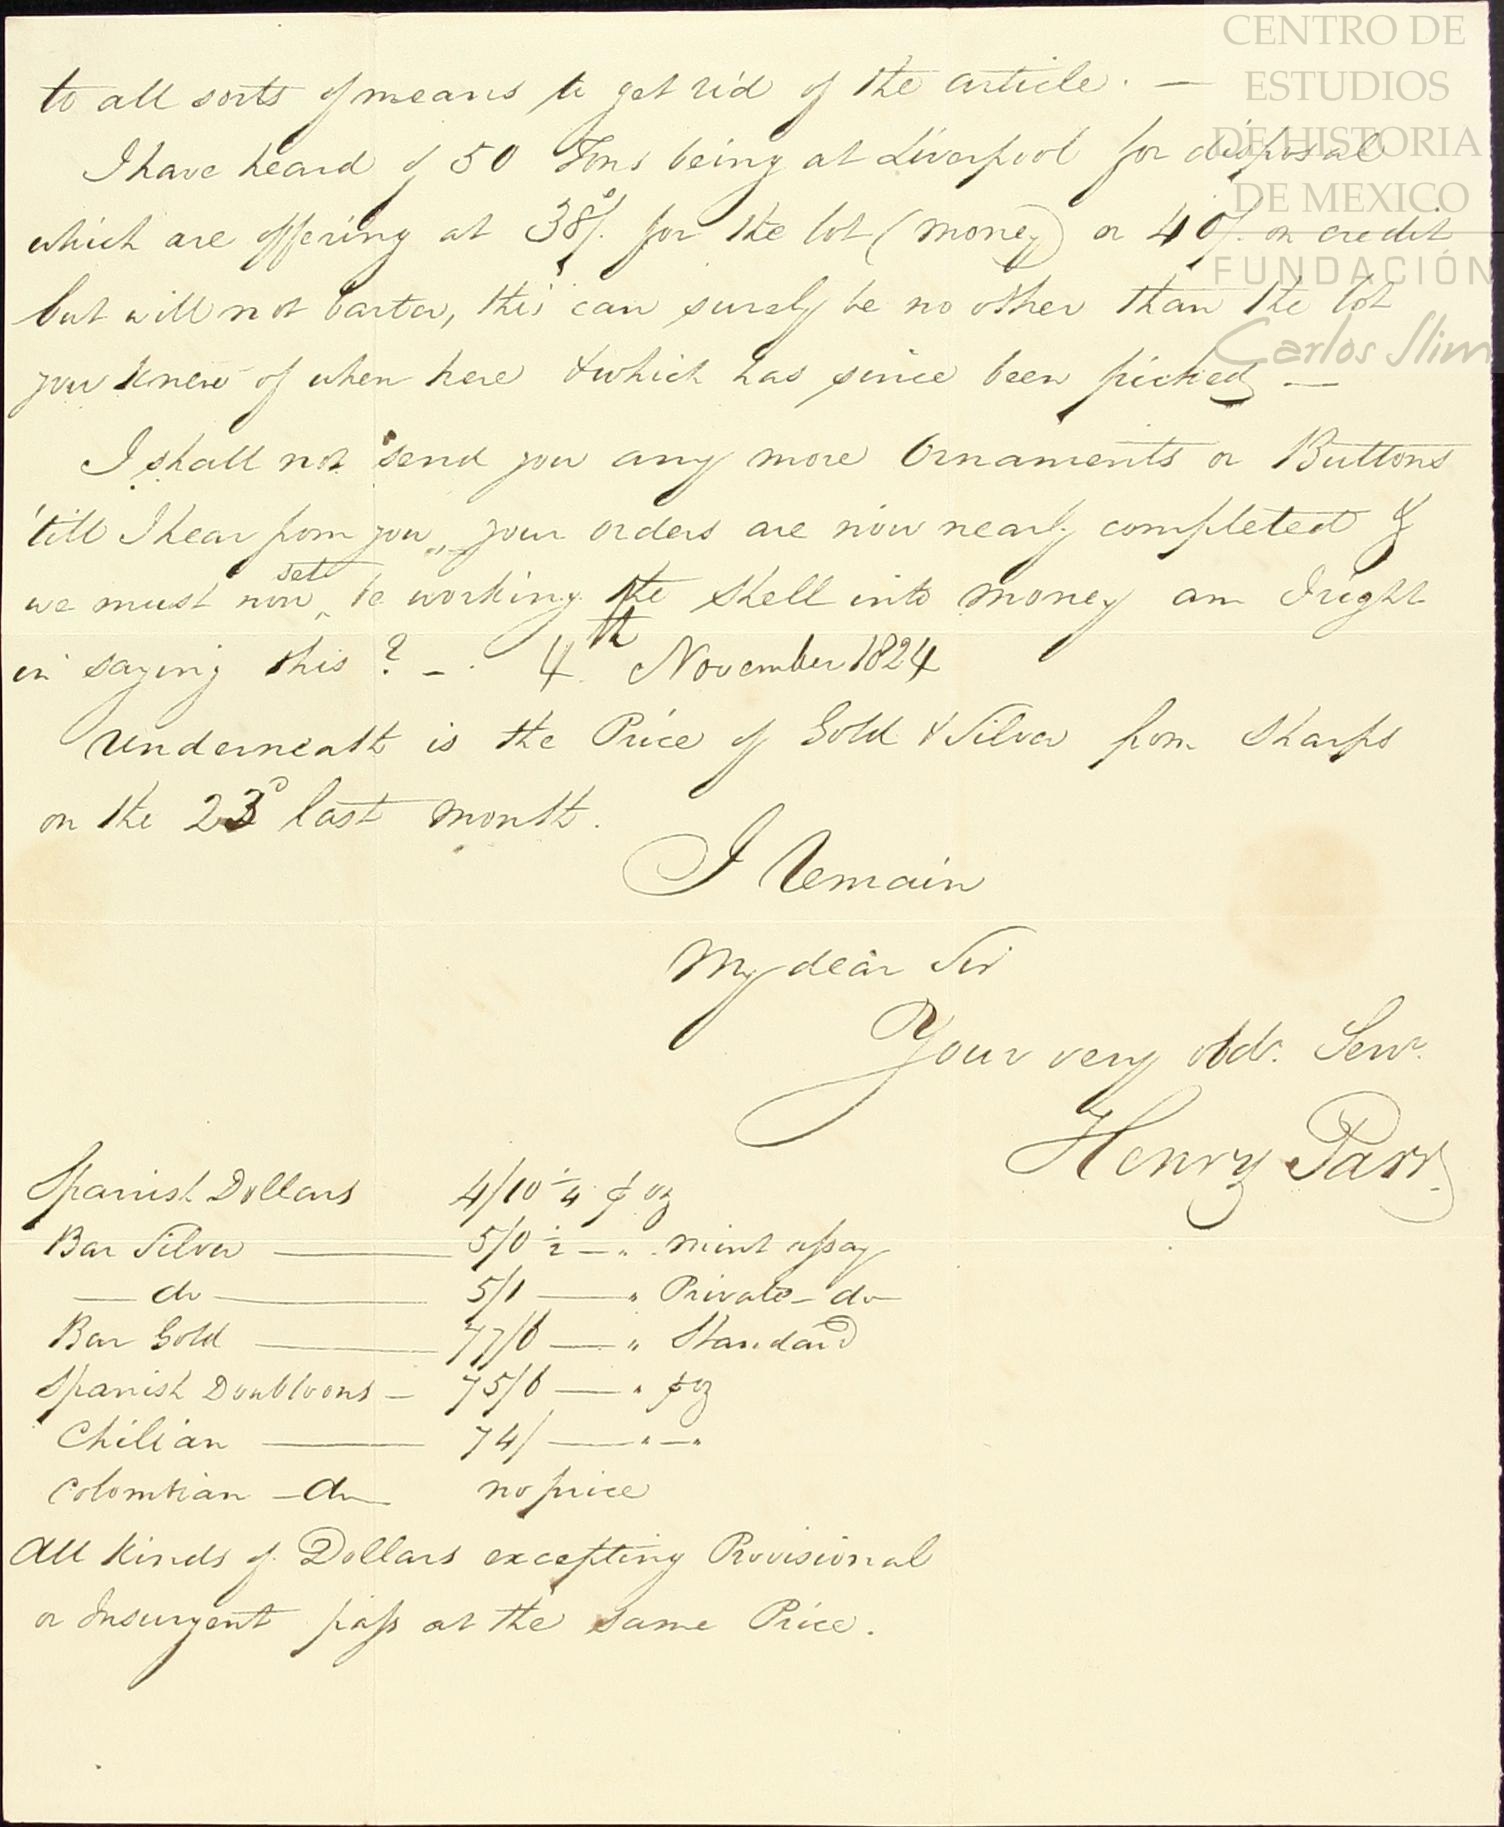 CENTRO DE
ESTUDIOS
DE HISTORIA
DE MEXICO
FUNDACIÓN
Carlos Slim
to all sorts of means to get rid of the article. —
I have heard of 50 Tons being at Liverpool for disposal
which are offering at 38/. for the lot (money) or 40/. on credit
but will not barter, this can surely be no other than the lot
you knew of when here & which has since been picked —
I shall not send you any more Ornaments or Buttons
'till I hear from you, your orders are now nearly completed &
we must now set to working the Shell into money am I right
in saying this? — 4th November 1824
Underneath is the Price of Gold & Silver from Sharps
on the 23d last month.
I Remain
My dear Sir
Your very obdt. Servt.
Henry Parr
Spanish Dollars 4/10 1/4 ⅌ oz
Bar Silver — 5/0 1/2 — " mint assay
— do — 5/1 — " Private — do —
Bar Gold — 77/6 — " Standard
Spanish Doubloons — 75/6 — " ⅌ oz
Chilian — 74/ — " — "
Colombian — do — no price
All kinds of Dollars excepting Provisional
or Insurgent pass at the same Price.